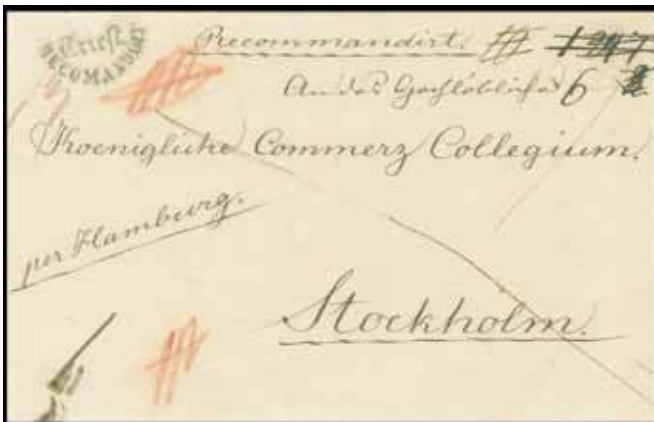 Triest
RECOMMANDIRT
Recommandirt.
An das Hochlöbliche 6
Koenigliche Commerz Collegium.
per Hamburg.
Stockholm.